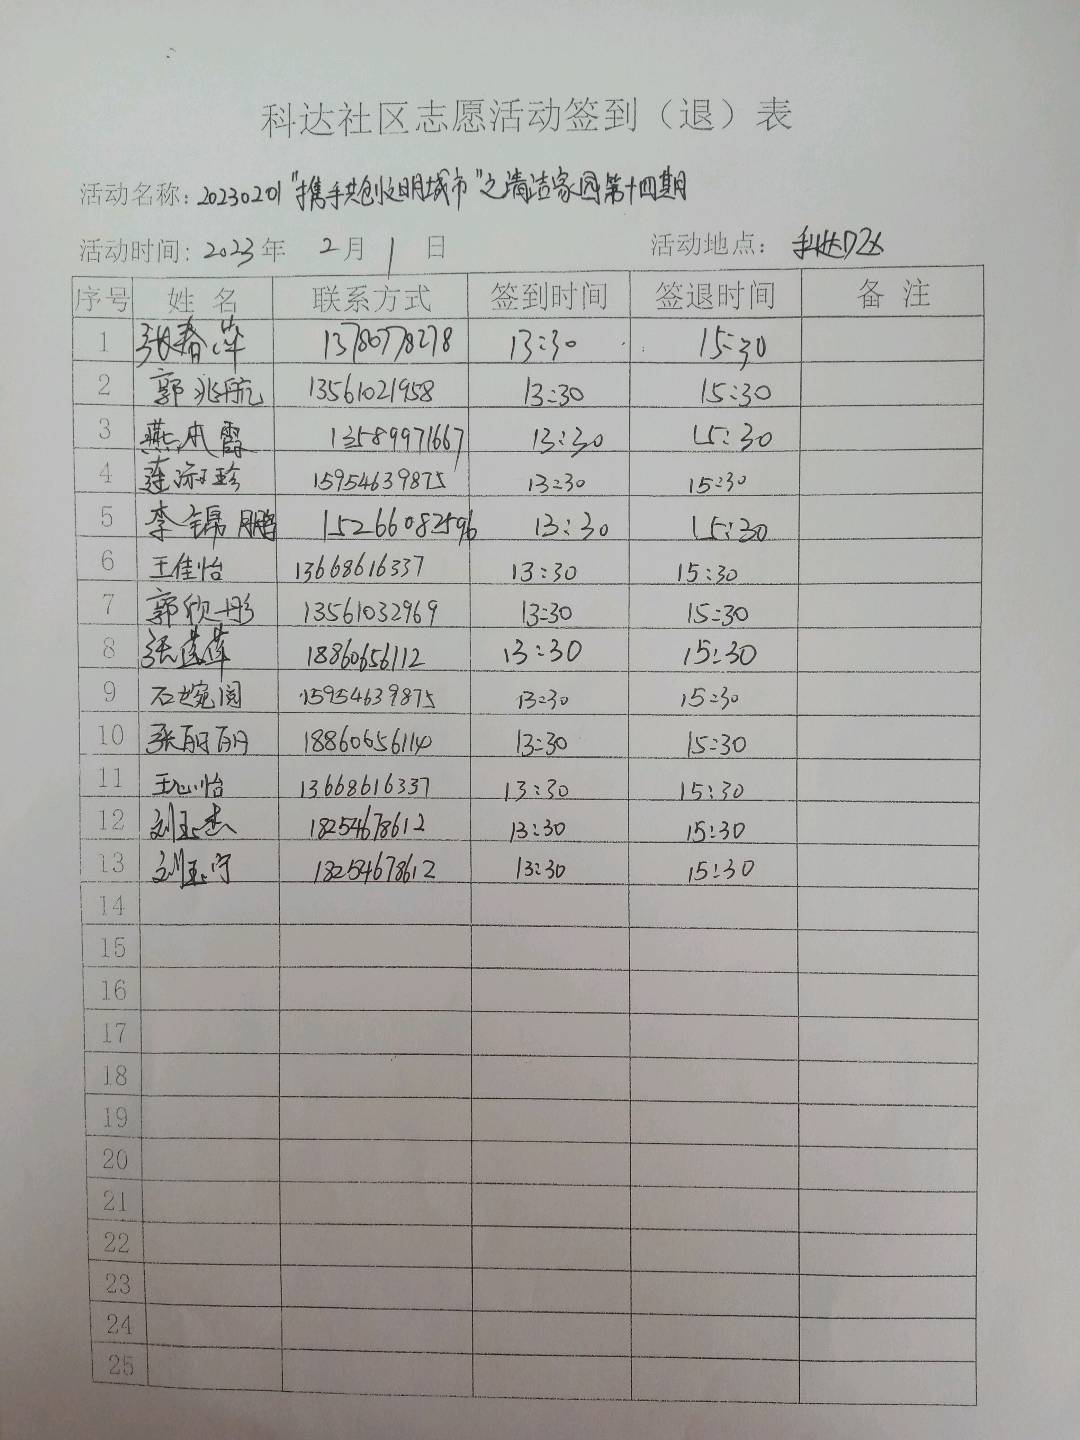 科达社区志愿活动签到（退）表
活动名称：20230201"携手共创文明城市"之清洁家园第十四期
活动时间：2023年 2月 1日 活动地点：科达D区
序号 姓名 联系方式 签到时间 签退时间 备注
1 张春萍 13780778278 13:30 15:30
2 郭兆航 13561021958 13:30 15:30
3 燕本霞 13589971667 13:30 15:30
4 连淑珍 15954639875 13:30 15:30
5 李锦鹏 15266082596 13:30 15:30
6 王佳怡 13668616337 13:30 15:30
7 郭欣彤 13561032969 13:30 15:30
8 张莲莲 18860656112 13:30 15:30
9 石婉阅 15954639875 13:30 15:30
10 张丽丽 18860656114 13:30 15:30
11 王心怡 13668616337 13:30 15:30
12 刘玉杰 18254678612 13:30 15:30
13 刘玉宁 18254678612 13:30 15:30
14
15
16
17
18
19
20
21
22
23
24
25